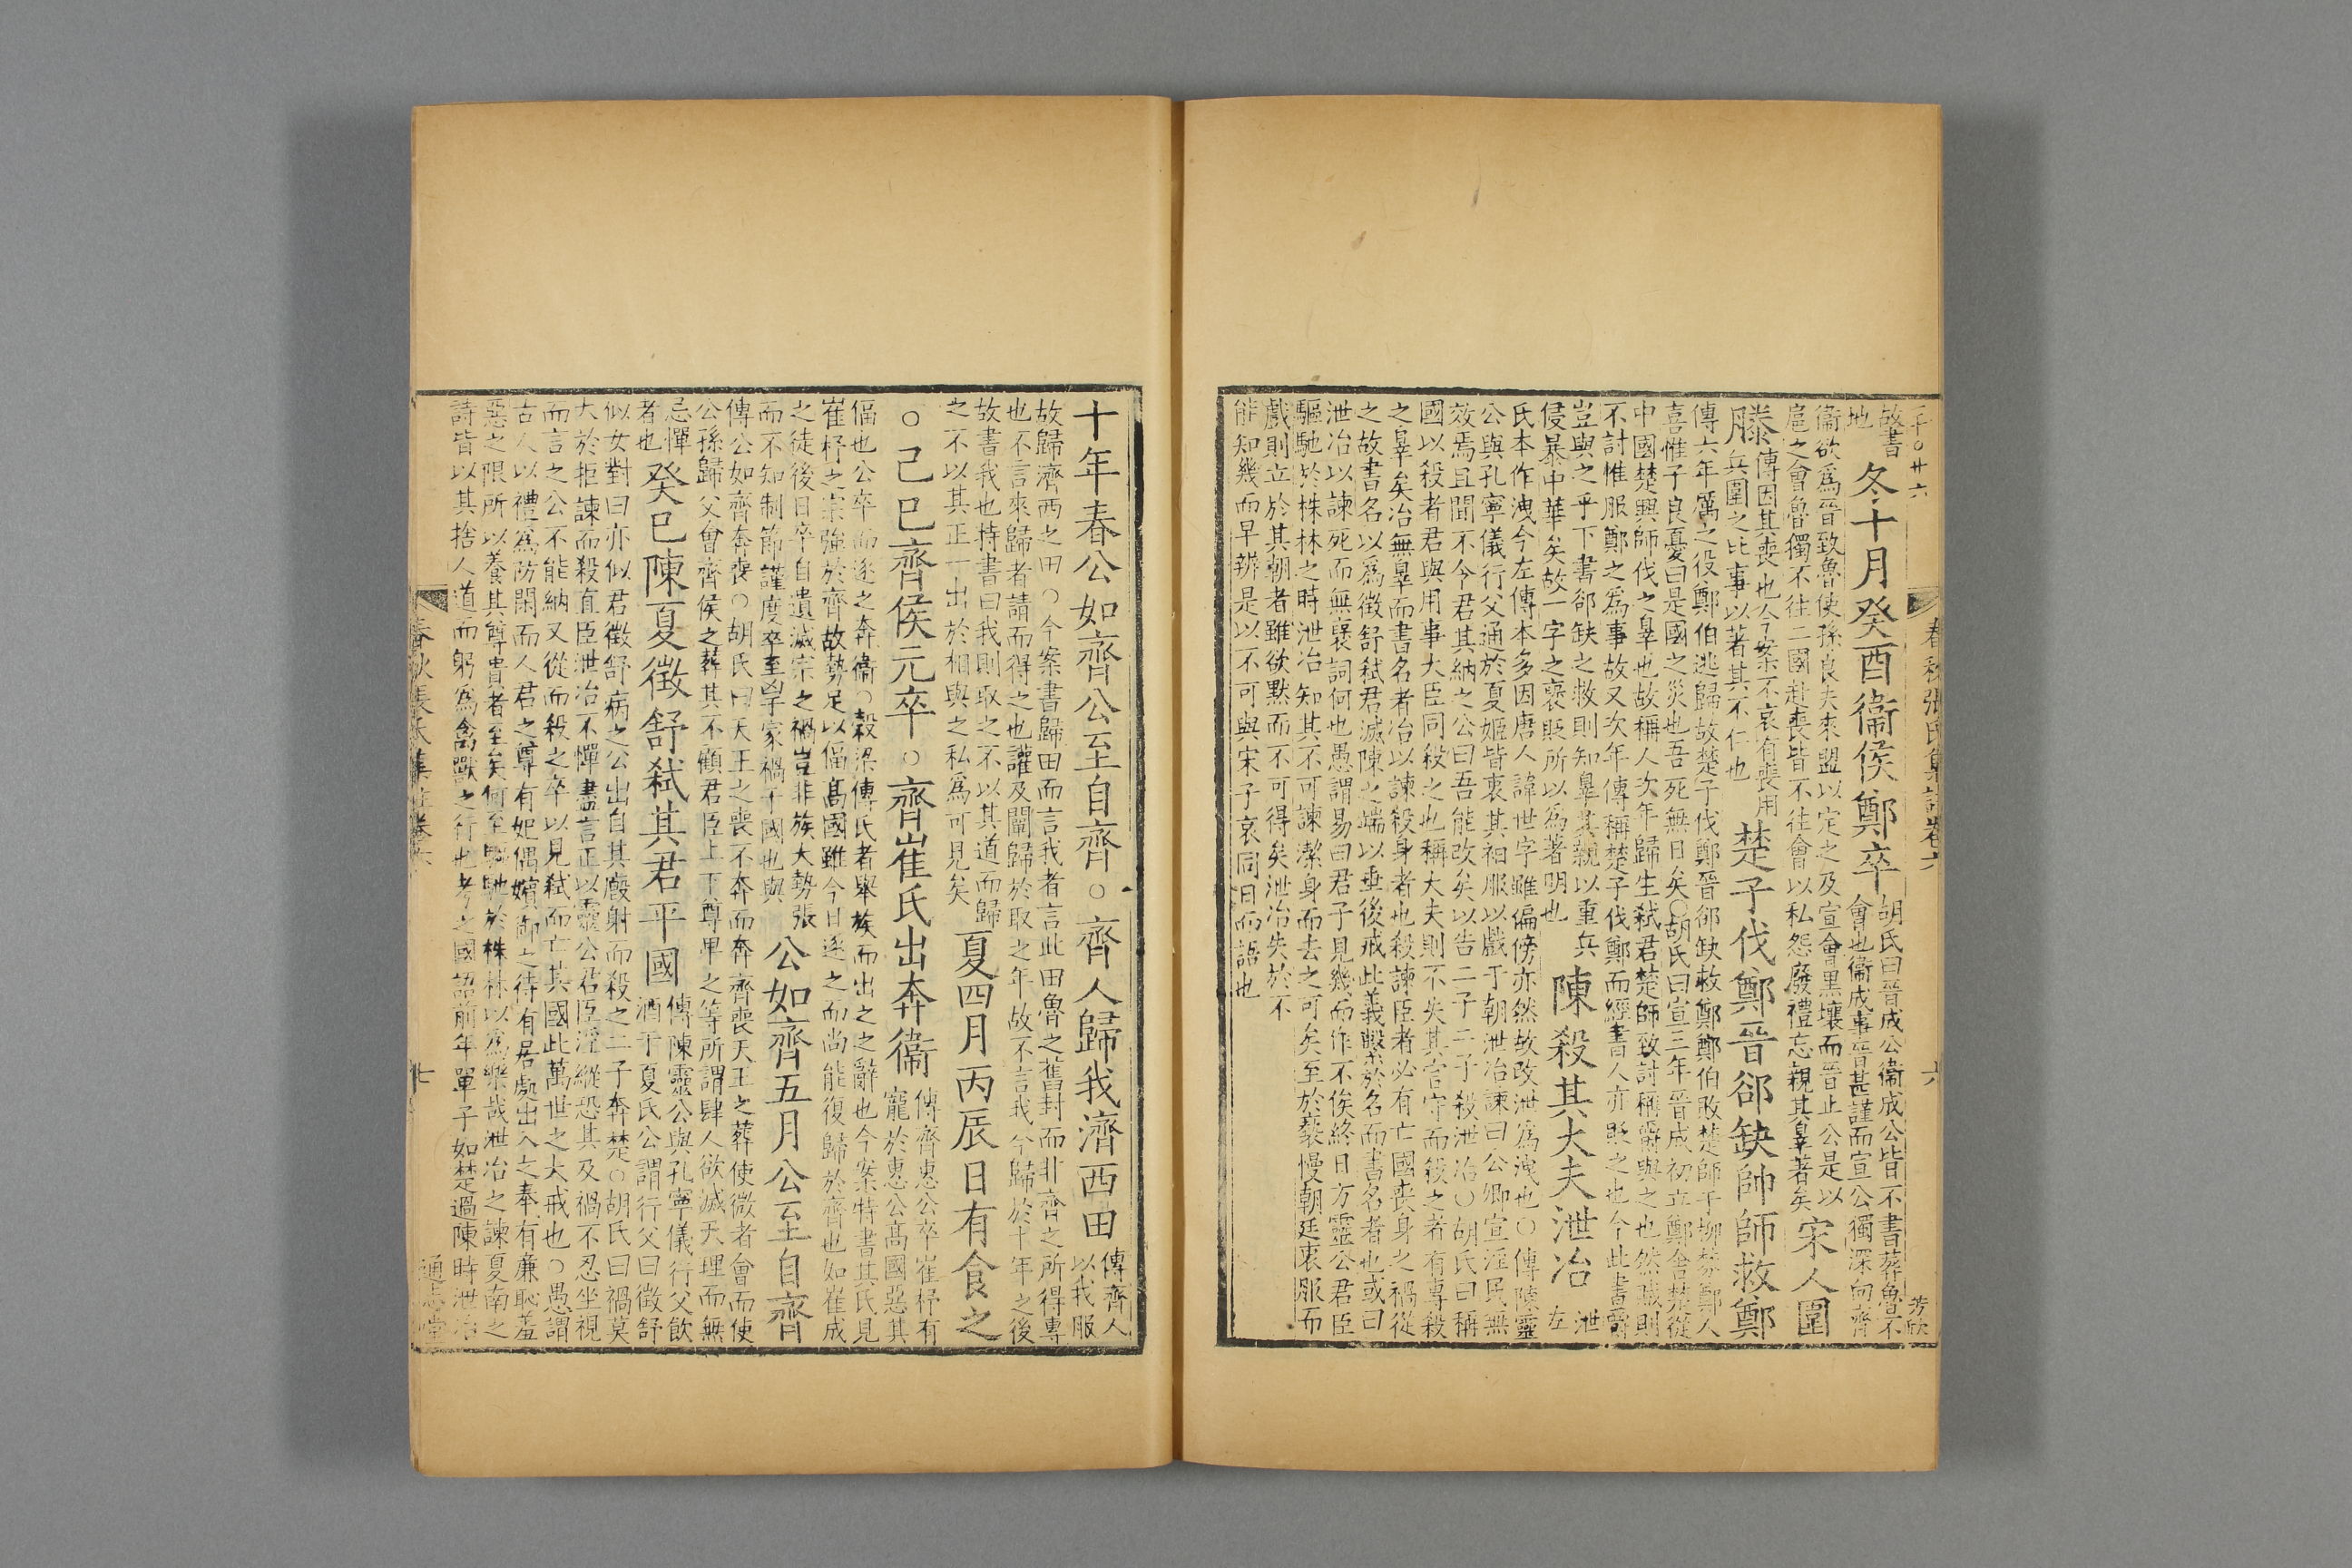 二千〇廿六
春秋張氏集註卷六
六
芳欣
故書
地
冬十月癸酉衞侯鄭卒
胡氏曰晉成公衞成公皆不書葬魯不
會也衞成事晉甚謹而宣公獨深向齊
衞欲爲晉致魯使孫良夫來盟以定之及宣會黑壤而晉止公是以
扈之會魯獨不往二國赴喪皆不往會以私怨廢禮忘親其辠著矣
宋人圍
滕
傳因其喪也今案不哀有喪用
兵圍之比事以著其不仁也
楚子伐鄭晉郤缺帥師救鄭
傳六年厲之役鄭伯逃歸故楚子伐鄭晉郤缺救鄭鄭伯敗楚師于柳棼鄭人
喜惟子良憂曰是國之災也吾死無日矣〇胡氏曰宣三年晉成初立鄭舍楚從
中國楚興師伐之辠也故稱人次年歸生弒君楚師致討稱爵與之也然則
不討惟服鄭之爲事故又次年傳稱楚子伐鄭而經書人亦貶之也今此書爵
豈與之乎下書郤缺之救則知辠其親以重兵
侵暴中華矣故一字之褒貶所以爲著明也
陳殺其大夫泄冶
泄
左
氏本作洩今左傳本多因唐人諱世字雖偏傍亦然故改泄爲洩也〇傳陳靈
公與孔寧儀行父通於夏姬皆衷其衵服以戲于朝泄冶諫曰公卿宣淫民無
效焉且聞不令君其納之公曰吾能改矣以告二子二子殺泄冶〇胡氏曰稱
國以殺者君與用事大臣同殺之也稱大夫則不失其官守而殺之者有專殺
之辠矣冶無辠而書名者冶以諫殺身者也殺諫臣者必有亡國喪身之禍從
之故書名以爲徵舒弒君滅陳之端以垂後戒此義繫於名而書名者也或曰
泄冶以諫死而無褒詞何也愚謂易曰君子見幾而作不俟終日方靈公君臣
驅馳於株林之時泄冶知其不可諫潔身而去之可矣至於褻慢朝廷衷服而
戲則立於其朝者雖欲默而不可得矣泄冶失於不
能知幾而早辨是以不可與宋子哀同日而語也
十年春公如齊公至自齊〇齊人歸我濟西田
傳齊人
以我服
故歸濟西之田〇今案書歸田而言我者言此田魯之舊封而非齊之所得專
也不言來歸者請而得之也讙及闡歸於取之年故不言我今歸於十年之後
故書我也特書曰我則取之不以其道而歸
之不以其正一出於相與之私爲可見矣
夏四月丙辰日有食之
〇己巳齊侯元卒〇齊崔氏出奔衞
傳齊惠公卒崔杼有
寵於惠公高國惡其
偪也公卒而逐之奔衞〇穀梁傳氏者舉族而出之之辭也今案特書其氏見
崔杼之宗強於齊故勢足以偪高國雖今日逐之而尚能復歸於齊也如崔成
之徒後日卒自遺滅宗之禍豈非族大勢張
而不知制節謹度卒至㓙家禍于國也與
公如齊五月公至自齊
傳公如齊奔喪〇胡氏曰天王之喪不奔而奔齊喪天王之葬使微者會而使
公孫歸父會齊侯之葬其不顧君臣上下尊卑之等所謂肆人欲滅天理而無
忌憚
者也
癸巳陳夏徵舒弒其君平國
傳陳靈公與孔寧儀行父飲
酒于夏氏公謂行父曰徵舒
似女對曰亦似君徵舒病之公出自其廄射而殺之二子奔楚〇胡氏曰禍莫
大於拒諫而殺直臣泄冶不憚盡言正以靈公君臣淫縱恐其及禍不忍坐視
而言之公不能納又從而殺之卒以見弒而亡其國此萬世之大戒也〇愚謂
古人以禮爲防閑而人君之尊有妃偶嬪御之待有居處出入之奉有廉恥羞
惡之限所以養其尊貴者至矣何至驅馳於株林以爲樂哉泄冶之諫夏南之
詩皆以其捨人道而躬爲禽獸之行也考之國語前年單子如楚過陳時泄冶
春秋張氏集註卷六
七
通志堂